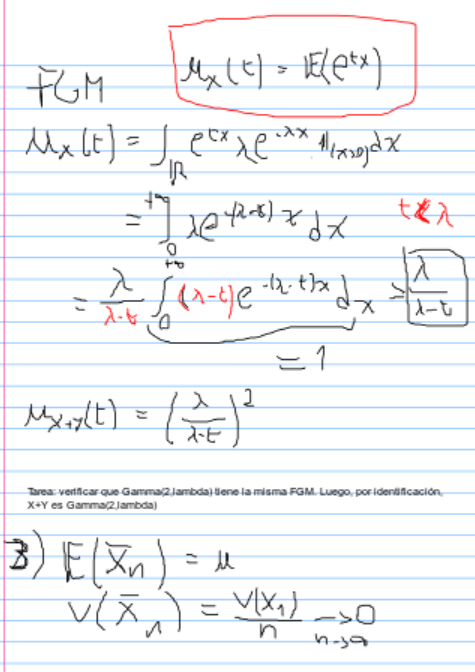 μ_X(t) = 𝔼(e^{tX})
FGM
μ_X(t) = ∫_ℝ e^{tx} λe^{-λx} 𝟙_{(x>0)} dx
= ∫_0^{+∞} λe^{-(λ-t)x} dx t<λ
= λ/(λ-t) ∫_0^{+∞} (λ-t)e^{-(λ-t)x} dx = λ/(λ-t)
= 1
μ_{X+Y}(t) = (λ/(λ-t))^2
Tarea: verificar que Gamma(2,lambda) tiene la misma FGM. Luego, por identificación,
X+Y es Gamma(2,lambda)
3) 𝔼(X̄_n) = μ
V(X̄_n) = V(X_1)/n →0
n→∞